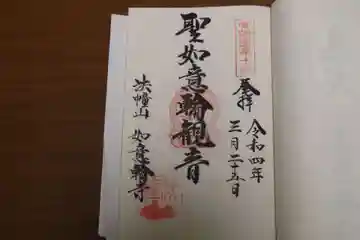 登拝
令和四年
三月二十五日
聖如意輪観音
法幢山
如意輪寺